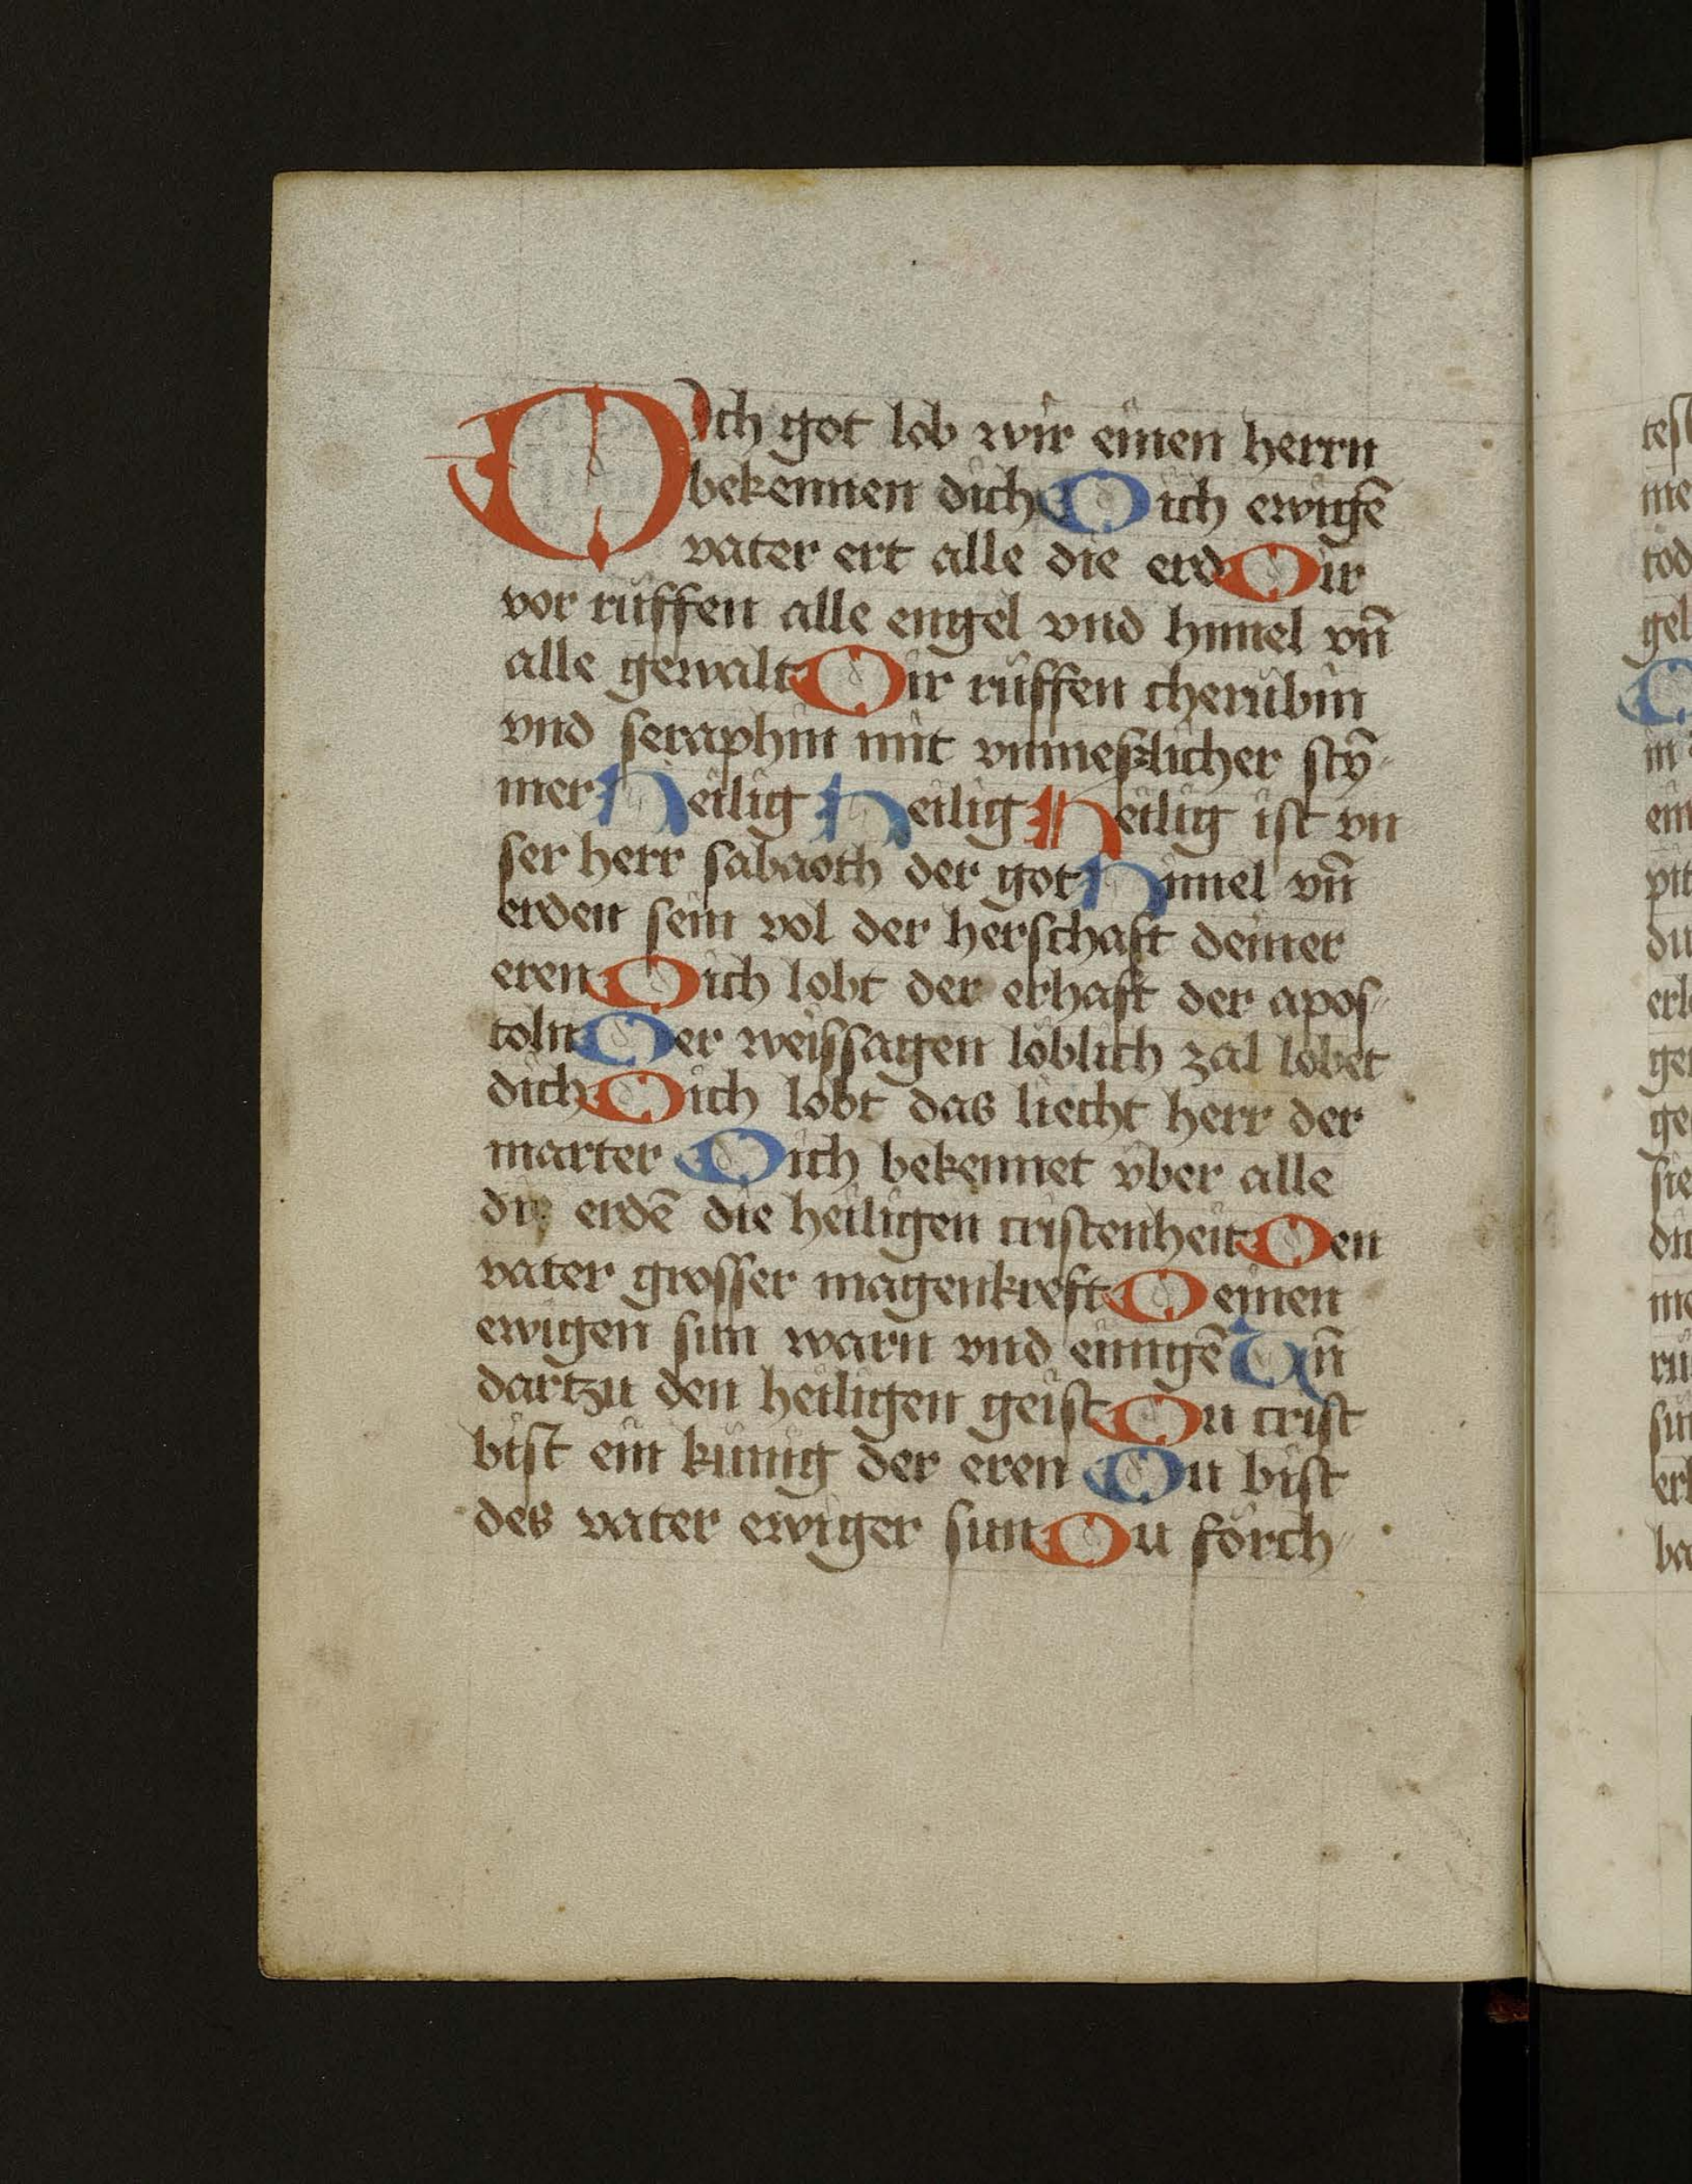 DIch got lob wir einen herrn
bekennen dich Dich ewigē
vater ert alle die erd Dir
vor rüffen alle engel vnd himel vn̄
alle gewalt Dir rüffen cherubin
vnd seraphin mit vnmeſzlicher stȳ-
mer Heilig Heilig Heilig ist vn
ser herr sabaoth der got Himel vn̄
erden sein vol der herschaft deiner
eren Dich lobt der erhaft der apos-
toln Der weissagen löblich zal lobet
dich Dich lobt das liecht herr der
marter Dich bekennet vber alle
die erdē die heiligen cristenheit Den
vater grosser magenkreft Deinen
ewigen sun warn vnd einigē Vn̄
dartzu den heiligen geist Du crist
bist ein künig der eren Du bist
des vater ewiger sun Du förch-